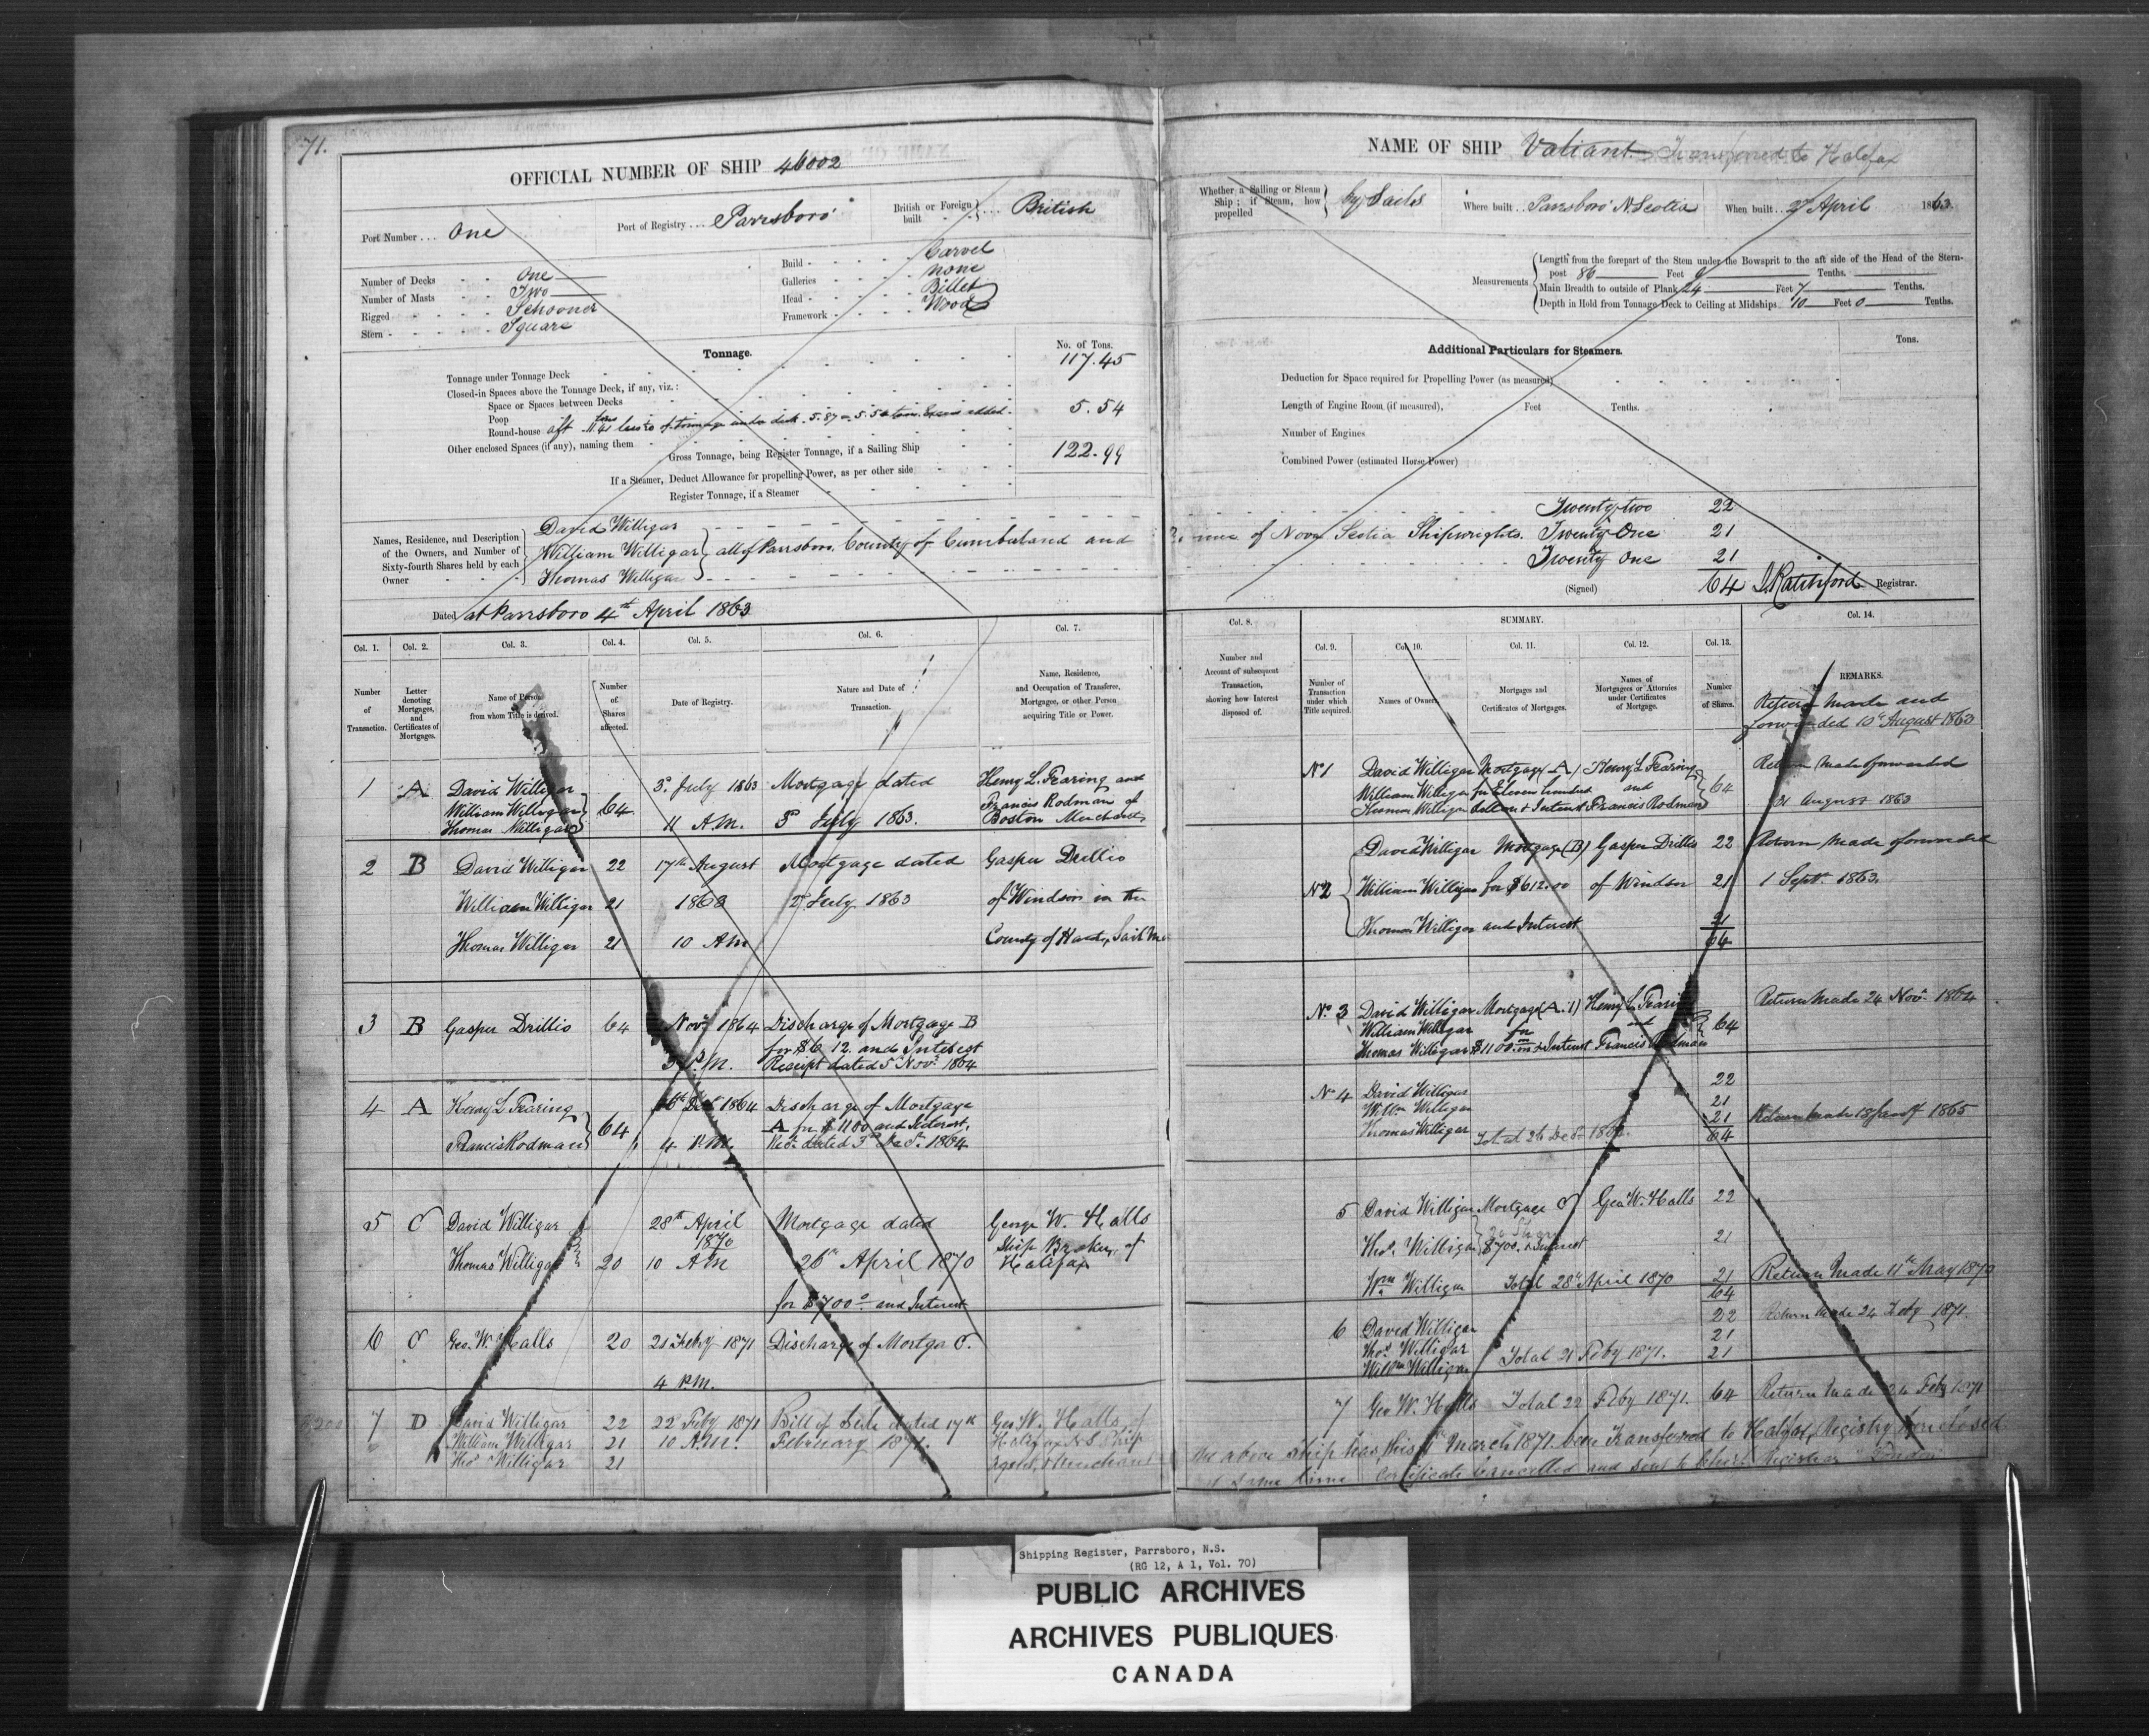 71.
OFFICIAL NUMBER OF SHIP 46002
Port Number . . . One
Port of Registry . . . Parrsboro
British or Foreign built . . . British
Number of Decks - - One
Number of Masts - - Two
Rigged - - - - Schooner
Stern - - - - Square
Build - - - - Carvel
Galleries - - - none
Head - - - - Billet
Framework - - - Wood
Tonnage.
No. of Tons.
Tonnage under Tonnage Deck 117.45
Closed-in Spaces above the Tonnage Deck, if any, viz.:
Space or Spaces between Decks
Poop
Round-house aft tons 11.41 less of tonnage under deck 5.87 5.54 tons Excess added 5.54
Other enclosed Spaces (if any), naming them
Gross Tonnage, being Register Tonnage, if a Sailing Ship 122.99
If a Steamer, Deduct Allowance for propelling Power, as per other side
Register Tonnage, if a Steamer
Names, Residence, and Description of the Owners, and Number of Sixty-fourth Shares held by each Owner
David Willigar
William Willigar all of Parrsboro County of Cumberland and
Thomas Willigar
Dated at Parrsboro 4th April 1863
Col. 1. Col. 2. Col. 3. Col. 4. Col. 5. Col. 6. Col. 7.
Number of Transaction.
Letter denoting Mortgages, and Certificates of Mortgages.
Name of Person from whom Title is derived.
Number of Shares affected.
Date of Registry.
Nature and Date of Transaction.
Name, Residence, and Occupation of Transferee, Mortgagee, or other Person acquiring Title or Power.
1 A David Willigar 3d July 1863 Mortgage dated Henry L. Fearing and
William Willigar 64 Francis Rodman of
Thomas Willigar 11 A.M. 3d July 1863. Boston Merchants
2 B David Willigar 22 17th August Mortgage dated Gasper Drillio
William Willigar 21 1863 2d July 1863 of Windsor in the
Thomas Willigar 21 10 AM County of Hants, Sail
3 B Gasper Drillio 64 Novr 1864 Discharge of Mortgage B
for $612. and Interest
3 P.M. Receipt dated 5 Novr 1864
4 A Henry L Fearing 64 Decr 1864 Discharge of Mortgage
A for $1100 and Interest,
Francis Rodman 4 P.M. Rect. dated 3d Decr. 1864
5 C David Willigar 28th April Mortgage dated George W. Halls
1870 Ship Broker, of
Thomas Willigar 20 10 AM 26th April 1870 Halifax
for $700 and Interest
6 C Geo. W. Halls 20 21 Feby 1871 Discharge of Mortga C.
4 P.M.
7 D David Willigar 22 22d Feby 1871 Bill of Sale dated 17th Geo W. Halls of
William Willigar 21 10 A.M. February 1871. Halifax N.S Ship
Thos Willigar 21 Merchant
NAME OF SHIP Valiant. Transferred to Halifax
Whether a Sailing or Steam Ship; if Steam, how propelled by Sails
Where built . . Parrsboro N. Scotia
When built . . 2d April 1863.
Measurements
Length from the forepart of the Stem under the Bowsprit to the aft side of the Head of the Stern-post 86 Feet 9 Tenths.
Main Breadth to outside of Plank 24 Feet 7 Tenths.
Depth in Hold from Tonnage Deck to Ceiling at Midships 10 Feet 0 Tenths.
Additional Particulars for Steamers.
Tons.
Deduction for Space required for Propelling Power (as measured)
Length of Engine Room (if measured), Feet Tenths.
Number of Engines
Combined Power (estimated Horse Power)
Twenty two 22
of Nova Scotia Shipwrights. Twenty One 21
Twenty One 21
(Signed) 64 Ratchford Registrar.
Col. 8. SUMMARY. Col. 14.
Col. 9. Col. 10. Col. 11. Col. 12. Col. 13.
Number and Account of subsequent Transaction, showing how Interest disposed of.
Number of Transaction under which Title acquired.
Names of Owner
Mortgages and Certificates of Mortgages.
Names of Mortgagees or Attornies under Certificates of Mortgage.
Number of Shares.
REMARKS.
Return made and
forwarded 10th August 1863
No 1 David Willigar Mortgage (A) Henry L Fearing Return made forwarded
William Willigar for Eleven hundred and 64
Thomas Willigar dollars & Interest Francis Rodman 31 August 1863
David Willigar Mortgage (B) Gasper Drillio 22 Return made forwarded
No 2 William Willigar for $612.00 of Windsor 21 1 Septr. 1863.
Thomas Willigar and Interest 21
64
No 3 David Willigar Mortgage (A.1) Henry L Fearing Return made 24 Novr 1864
William Willigar for and 64
Thomas Willigar $1100 & Interest Francis Rodman
No 4 David Willigar 22
Willm Willigar 21
Thomas Willigar Total 21 Return made 18 Jany 1865
64
5 David Willigar Mortgage C Geo W. Halls 22
Thos. Willigar $700. & Interest 21
Wm Willigar Total 28th April 1870 21 Return made 11th May 1870
64
6 David Willigar 22 Return made 24 Feby 1871.
Thos Willigar 21
Willm Willigar Total 21 Feby 1871. 21
7 Geo W. Halls Total 22 Feby 1871. 64 Return made 24 Feby 1871
The above Ship has, this March 1871. been Transferred to Halifax, Registry closed
at same time Certificate Cancelled and sent to Chief Registrar London
Shipping Register, Parrsboro, N.S.
(RG 12, A 1, Vol. 70)
PUBLIC ARCHIVES
ARCHIVES PUBLIQUES
CANADA